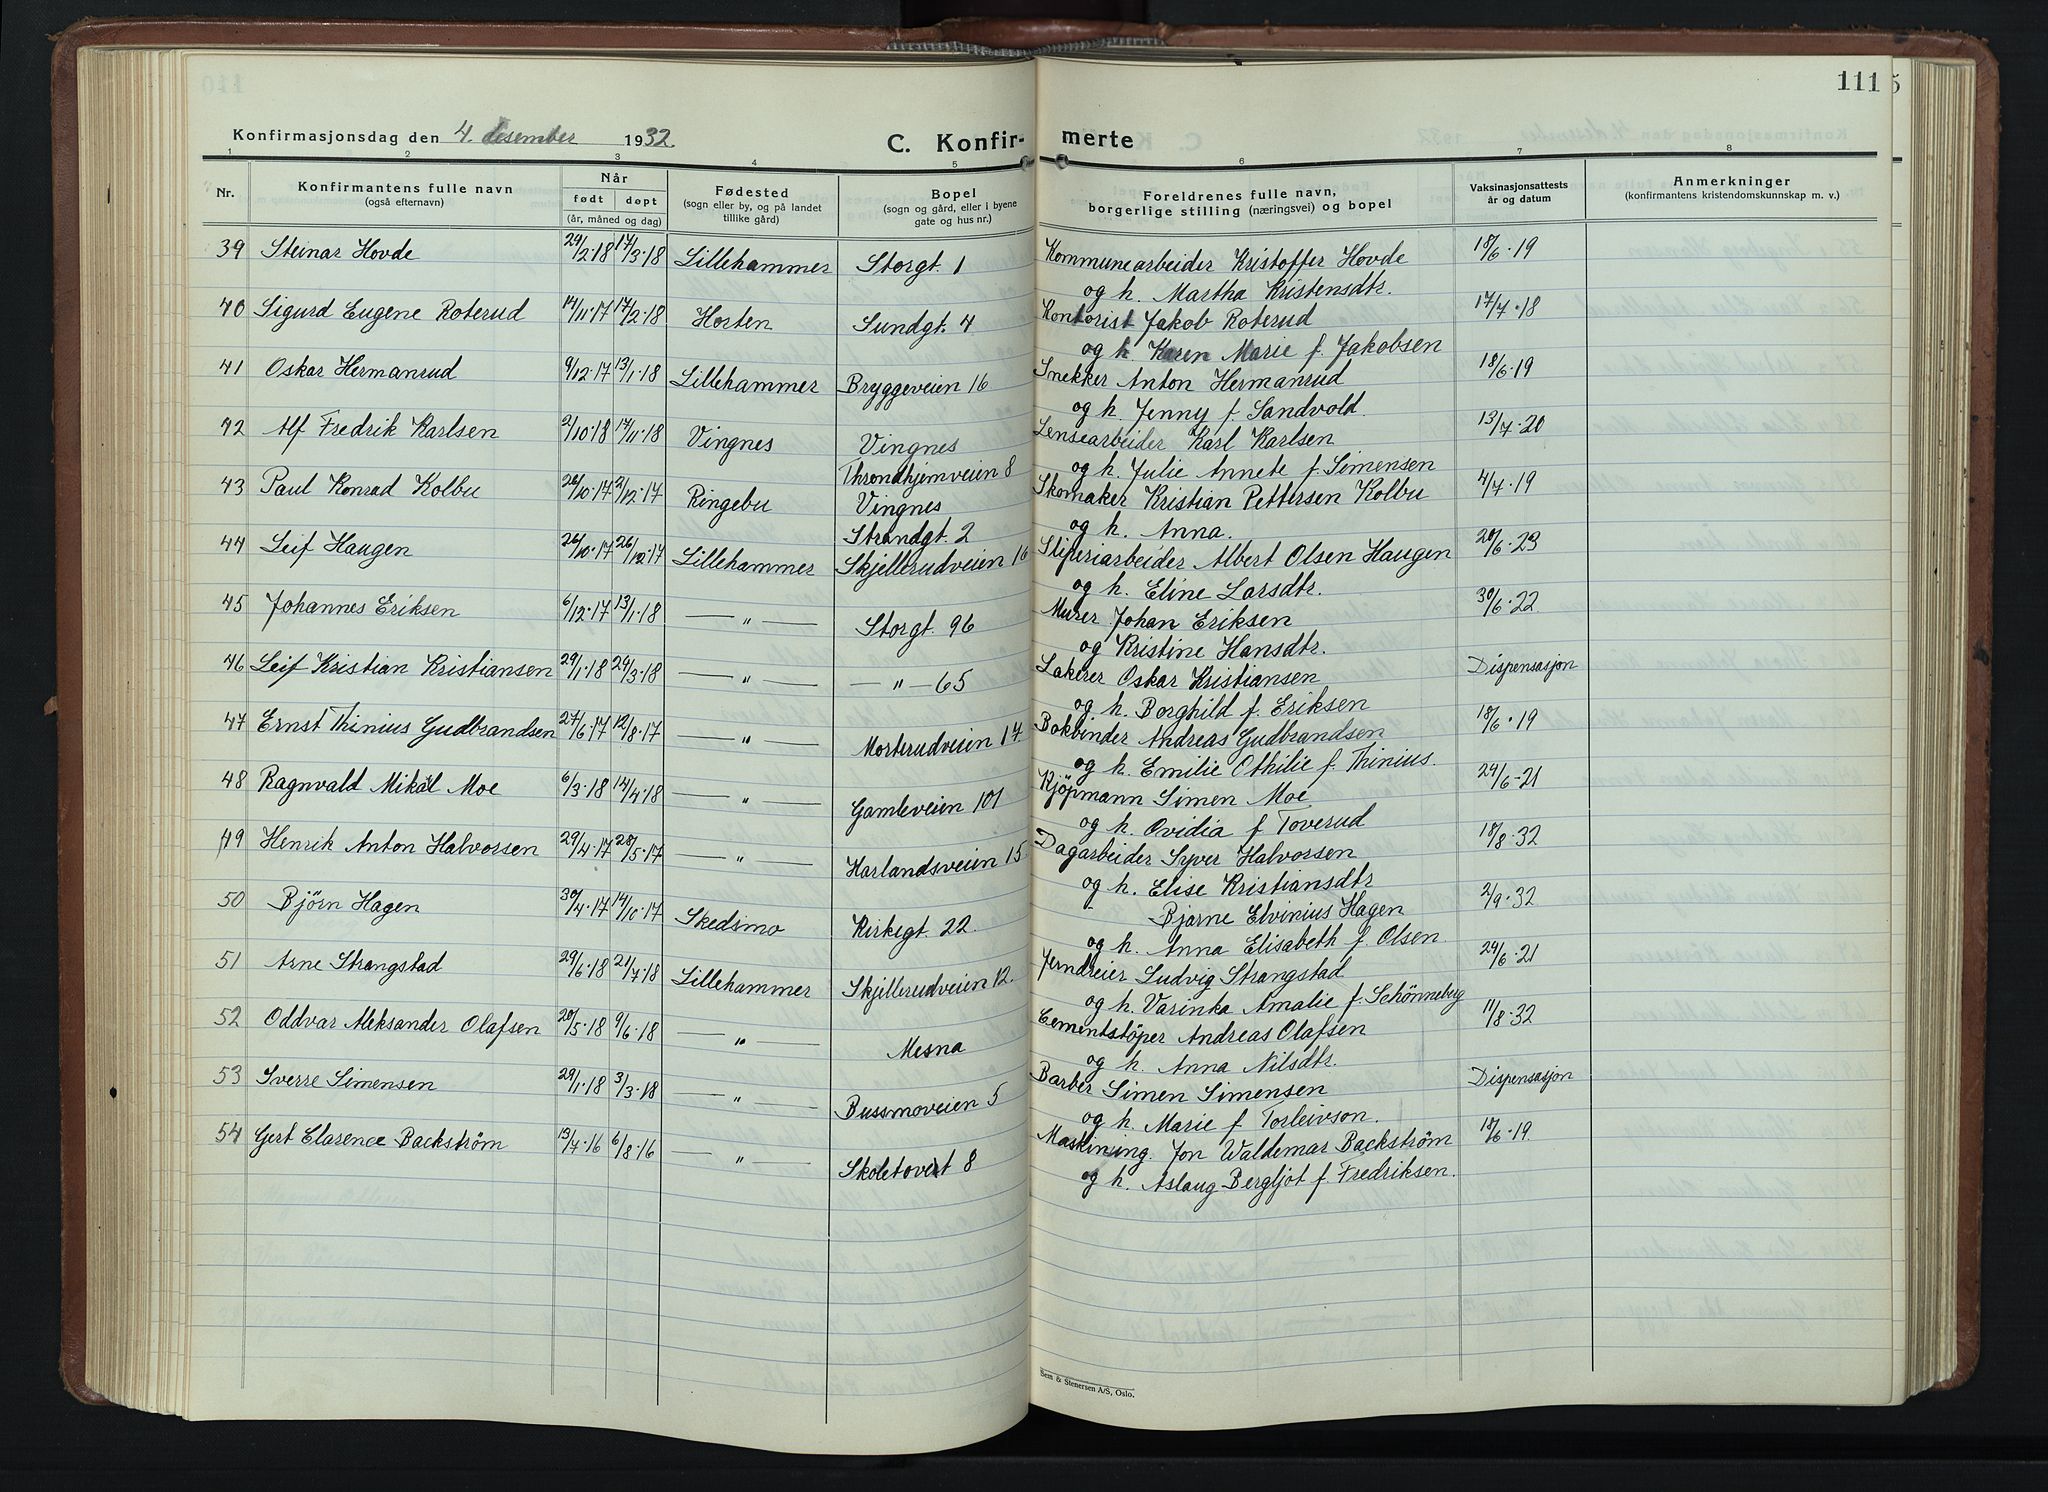 111
Konfirmasjonsdag den 4. desember 1932.
C. Konfir-
merte
1 2 3 4 5 6 7 8
Nr.
Konfirmantens fulle navn
(også efternavn)
Når
født døpt
(år, måned og dag)
Fødested
(sogn eller by, og på landet
tillike gård)
Bopel
(sogn og gård, eller i byene
gate og hus nr.)
Foreldrenes fulle navn,
borgerlige stilling (næringsvei) og bopel
Vaksinasjonsattests
år og datum
Anmerkninger
(konfirmantens kristendomskunnskap m. v.)
39 Steinar Hovde 24/2·18 17/3·18 Lillehammer Storgt. 1 Kommunearbeider Kristoffer Hovde 18/6·19
og h. Martha Kristensdtr.
40 Sigurd Eugene Roterud 14/11·17 17/2·18 Horten Sundgt. 4 Kontorist Jakob Roterud 17/7·18
og h. Karen Marie f. Jakobsen
41 Oskar Hermanrud 9/12·17 13/1·18 Lillehammer Bryggeveien 16 Snekker Anton Hermanrud 18/6·19
og h. Jenny f. Sandvold.
42 Alf Fredrik Karlsen 2/10·18 17/11·18 Vingnes Vingnes Lensearbeider Karl Karlsen 13/7·20
Throndhjemveien 8 og h. Julie Annete f. Simensen
43 Paul Konrad Kolbu 26/10·17 2/12·17 Ringebu Vingnes Skomaker Kristian Pettersen Kolbu 4/7·19
Strandgt. 2 og h. Anna.
44 Leif Haugen 26/10·17 26/12·17 Lillehammer Skjellerudveien 16 Sliperiarbeider Albert Olsen Haugen 20/6·23
og h. Eline Larsdtr.
45 Johannes Eriksen 6/12·17 13/1·18 — " — Storgt. 96 Murer Johan Eriksen 30/6·22
og Kristine Hansdtr.
46 Leif Kristian Kristiansen 29/1·18 24/3·18 — " — — " — 65 Lakerer Oskar Kristiansen Dispensasjon
og h. Borghild f. Eriksen
47 Ernst Thinius Gudbrandsen 27/6·17 12/8·17 — " — Morterudveien 14 Bokbinder Andreas Gudbrandsen 18/6·19
og h. Emilie Othilie f. Thinius.
48 Ragnvald Mikal Moe 6/3·18 14/4·18 — " — Gamleveien 101 Kjöpmann Simen Moe 24/6-21
og h. Ovidia f Toverud
49 Henrik Anton Halvorsen 29/4·17 28/5·17 — " — Harlandsveien 15 Dagarbeider Syver Halvorsen 18/8·32
og h. Elise Kristiansdtr
50 Bjørn Hagen 30/4·17 14/10·17 Skedsmo Kirkegt. 22. Bjarne Elvinius Hagen 2/9·32
og h. Anna Elisabeth f. Olsen
51 Arne Strangstad 29/6·18 21/7·18 Lillehammer Skjellerudveien 12. Jerndreier Ludvig Strangstad 24/6·21
og h. Varinka Amalie f. Schønneberg
52 Oddvar Aleksander Olafsen 20/5·18 9/6·18 — " — Mesna Cementstöper Andreas Olafsen 11/8·32
og h. Anna Nilsdtr.
53 Sverre Simensen 29/1·18 3/3·18 — " — Bussmoveien 5 Barber Simen Simensen Dispensasjon
og h. Marie f Torleivson.
54 Gert Clarence Backström 13/7·16 6/8·16 — " — Skoletovet 8 Maskining. Jon Waldemar Backström 18/6·19.
og h. Aslaug Bergljot f. Fredriksen.
Sem & Stenersen A/S, Oslo.